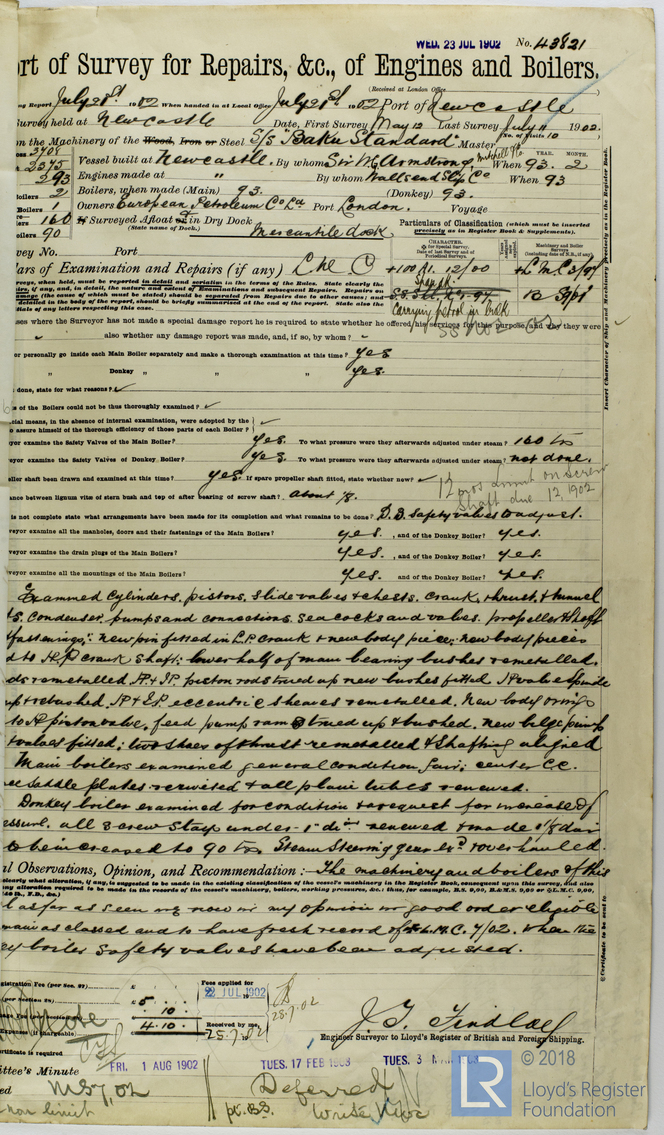 WED. 23 JUL 1902 No. 43821
ort of Survey for Repairs, &c., of Engines and Boilers.
(Received at London Office
ng Report July 21st 1902 When handed in at Local Office July 21st 1902 Port of Newcastle
Survey held at Newcastle Date, First Survey May 12 Last Survey July 11 1902.
No. of Visits 10
on the Machinery of the Wood, Iron or Steel S/S "Baku Standard" Master
3708
2375 Vessel built at Newcastle. By whom Sir W G Armstrong Mitchell & Co When 93. 2
YEAR. MONTH.
293 Engines made at By whom Wallsend Slip Co When 93
oilers 2 Boilers, when made (Main) 93. (Donkey) 93.
Boilers 1 Owners European Petroleum Co Ld Port London. Voyage
160 If Surveyed Afloat or in Dry Dock
(State name of Dock.) Mercantile dock
oilers 90
Particulars of Classification (which must be inserted
precisely as in Register Book & Supplements).
vey No. Port
CHARACTER.
lars of Examination and Repairs (if any) LMC
+100 A1. 12/00 +LMC 3/97
Carrying petrol in bulk
ses where the Surveyor has not made a special damage report he is required to state whether he offered his services for this purpose, and why they were
also whether any damage report was made, and, if so, by whom?
or personally go inside each Main Boiler separately and make a thorough examination at this time? Yes
" Donkey " " " Yes.
done, state for what reasons?
s of the Boilers could not be thoroughly examined?
cial means, in the absence of internal examination, were adopted by the
o assure himself of the thorough efficiency of those parts of each Boiler?
yor examine the Safety Valves of the Main Boiler? Yes. To what pressure were they afterwards adjusted under steam? 160 lbs
yor examine the Safety Valves of Donkey Boiler? Yes. To what pressure were they afterwards adjusted under steam? not done.
ller shaft been drawn and examined at this time? Yes. If spare propeller shaft fitted, state whether now?
shaft due 12.1902
ance between lignum vitæ of stern bush and top of after bearing of screw shaft? about 1/8.
is not complete state what arrangements have been made for its completion and what remains to be done? D.B. Safety valves to adjust.
rveyor examine all the manholes, doors and their fastenings of the Main Boilers? Yes. , and of the Donkey Boiler? Yes.
rveyor examine the drain plugs of the Main Boilers? Yes. , and of the Donkey Boiler? Yes.
rveyor examine all the mountings of the Main Boilers? Yes. and of the Donkey Boiler? Yes.
Examined cylinders, pistons, slide valves & chests, crank, thrust, & tunnel
condenser, pumps and connections, sea cocks and valves. propeller & shaft
fastenings. New pin fitted in L.P. crank & new body piece. new body pieces
d to H.P. crank shaft; lower half of main bearing bushes remetalled.
ds remetalled H.P. & I.P. piston rods trued up new bushes fitted H valve spindle
up & rebushed. H.P. & I.P. eccentric sheaves remetalled. New body rings
to H.P. piston valve, feed pump rams trued up & bushed. new bilge pump
& valves fitted; two shoes of thrust remetalled & shafting aligned
Main boilers examined general condition fair; center C.C.
saddle plates rerivetted & all plain tubes renewed.
Donkey boiler examined for condition & request for increase of
essure. all screw stays under 1" dia renewed & made 1 1/8 dia
to be increased to 90 lbs Steam Steering gear exd & overhauled.
al Observations, Opinion, and Recommendation:— The machinery and boilers of this
clearly what alteration, if any, is suggested to be made in the existing classification of the vessel's machinery in the Register Book, consequent upon this survey, and also
any alteration required to be made in the records of the vessel's machinery, boilers, working pressure, &c.: thus, for example, B.S. 9,00, B.&M.S. 9,00 or L.M.C. 9,00,
l as far as seen are now in my opinion in good order eligible
main as classed and to have fresh record of L.M.C. 7/02. when the
ey boiler safety valves have been adjusted.
Insert Character of Ship and Machinery precisely as in the Register Book.
Certificate to be sent to
gistration Fee (per Sec. 27) Fees applied for
22 JUL 1902
5
10
4.10. Received by me,
25.7.02
28.7.02
J. T. Findlay
Engineer Surveyor to Lloyd's Register of British and Foreign Shipping.
ertificate is required
ttee's Minute FRI. 1 AUG 1902 TUES. 17 FEB 1903 TUES. 3 MAR 1903
Deferred
© 2018
LR
Lloyd's Register
Foundation